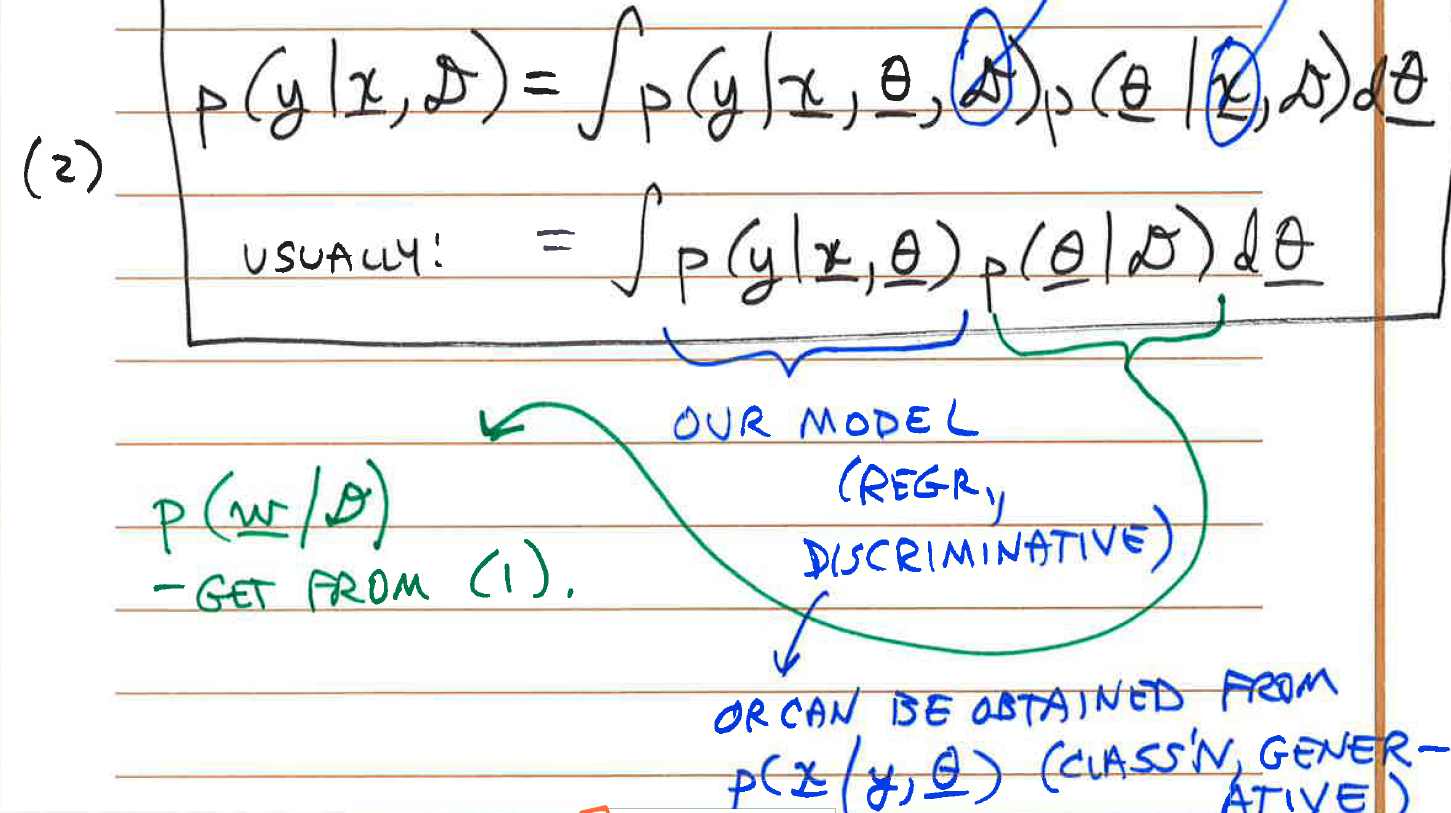 p(y|x, D) = ∫p(y|x, θ, D)p(θ|x, D)dθ
(2)
USUALLY: = ∫p(y|x, θ)p(θ|D)dθ
OUR MODEL
(REGR,
DISCRIMINATIVE)
p(w|D)
- GET FROM (1).
OR CAN BE OBTAINED FROM
p(x|y, θ) (CLASS'N, GENER-
ATIVE)